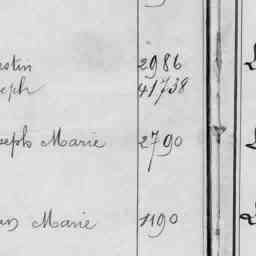 stin 2986
seph 41738
seph Marie 2790
Marie 1190